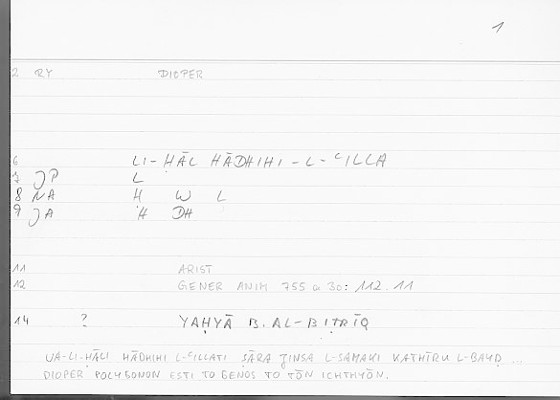 1
2 RY DIOPER
6 LI-ḤĀL HĀDHIHI-L-ʿILLA
7 JP L
8 NA H W L
9 JA H DH
11 ARIST
12 GENER ANIM 755 a 30: 112.11
14 ? YAḤYĀ B. AL-BIṬRĪQ
WA-LI-ḤĀLI HĀDHIHI L-ʿILLATI ṢĀRA ǦINSA L-SAMAKI KATHĪRU L-BAYḌ ...
DIOPER POLYGONON ESTI TO GENOS TO TŌN ICHTHYŌN.